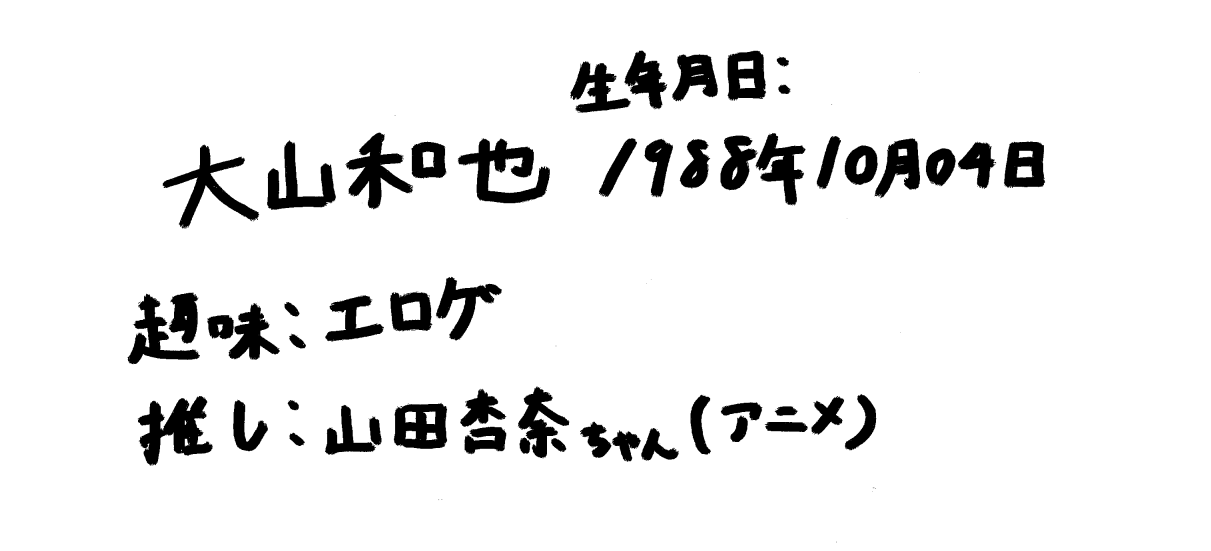 生年月日:
大山和也 1988年10月04日
趣味:エロゲ
推し:山田杏奈ちゃん(アニメ)